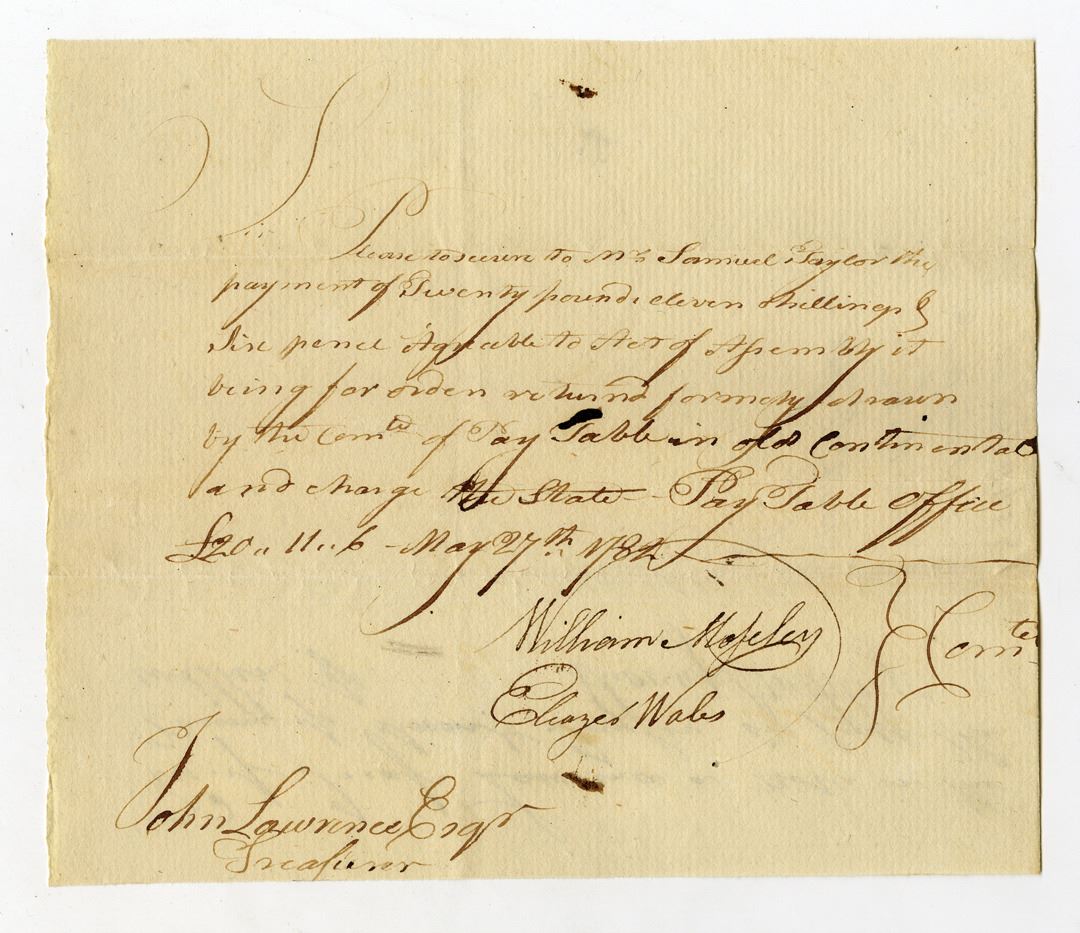 Sir
Please to secure to Mr. Samuel Taylor the
payment of Twenty pounds eleven shillings &
Six pence Agreable to Act of Assembly it
being for orders returnd formerly drawn
by the Comtee of Pay Table in old Continental
and charge the State - Pay Table Office
£20,, 11,, 6 - May 27th.. 1782
William Moseley
Eleazer Wales
} Comtee
John Lawrence, Esqr
Treasurer